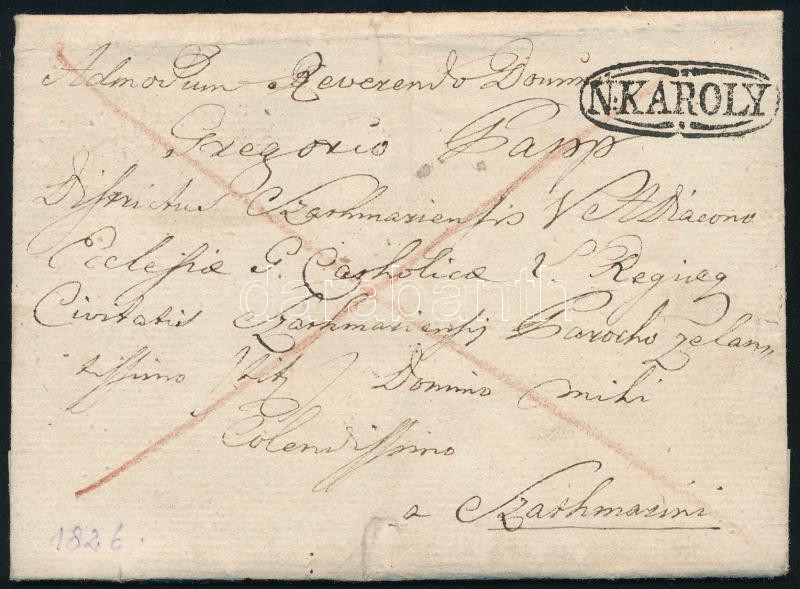 Admodum Reverendo Domino
N·KAROLY
Gregorio Papp
Districtus Szathmariensis V A Diacono
Ecclesiæ G. Catholicæ L. Regiæq
Civitatis Szathmariensis Parocho zelan„
tissimo Domino mihi
Colendissimo
a Szathmarini
1826.
darabanth